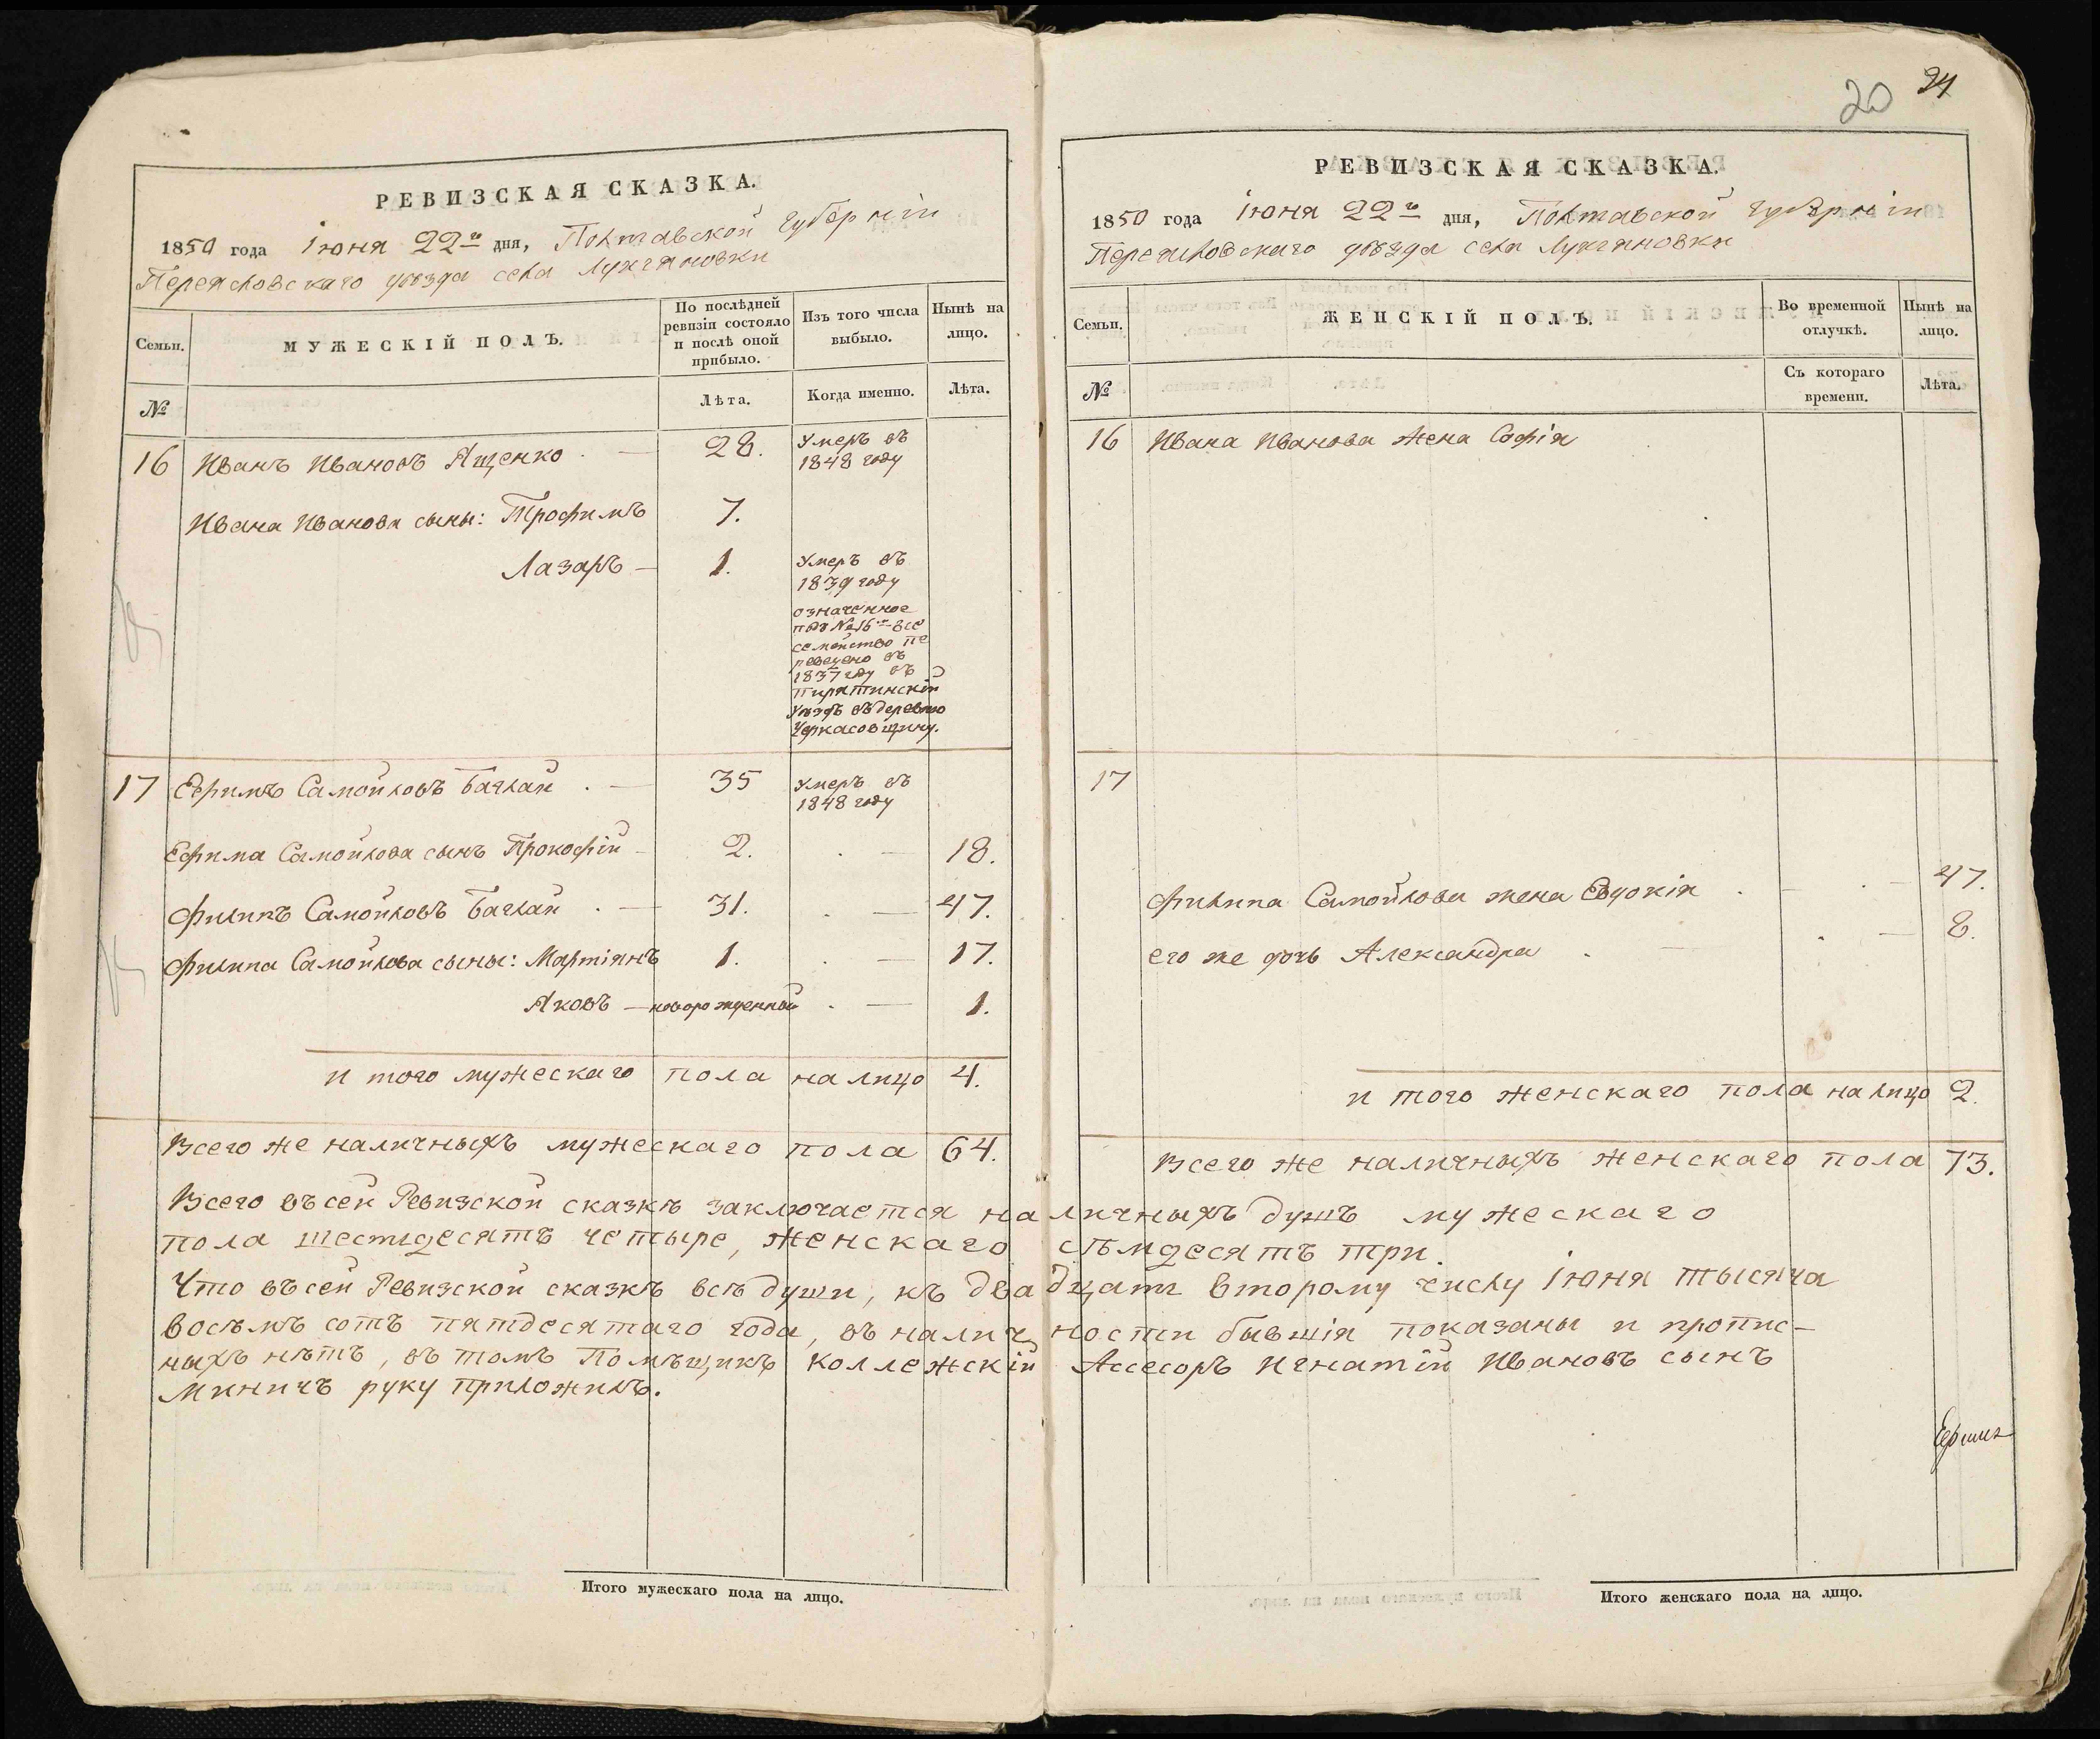 20 24
РЕВИЗСКАЯ СКАЗКА.
1850 года Іюня 22го дня, Полтавской Губерніи
Переясловскаго уѣзда села Лукяновки
Семьи.
МУЖЕСКІЙ ПОЛЪ.
По послѣдней
ревизіи состояло
и послѣ оной
прибыло.
Изъ того числа
выбыло.
Нынѣ на
лицо.
№
Лѣта.
Когда именно.
Лѣта.
16 Иванъ Ивановъ Ященко . — 28. Умеръ въ
1848 году
Ивана Иванова сыны: Трофимъ 7.
Лазаръ — 1. Умеръ въ
1839 году
означенное
подъ №16м все
семейство пе
реведено въ
1837 году въ
Пирятинскій
Уѣздъ въ деревню
Черкасовщину.
17 Ефимъ Самойловъ Баглай . — 35 Умеръ въ
1848 году
Ефима Самойлова сынъ Прокофій — 2. . — 18.
Филипъ Самойловъ Баглай . — 31. . — 47.
Филипа Самойлова сыны: Мартіянъ 1. . — 17.
Яковъ — новорожденный . — 1.
и того мужескаго пола на лицо 4.
Всего же наличныхъ мужескаго пола 64.
РЕВИЗСКАЯ СКАЗКА.
1850 года Іюня 22го дня, Полтавской Губерніи
Переясловскаго уѣзда села Лукяновки
Семьи.
ЖЕНСКІЙ ПОЛЪ.
Во временной
отлучкѣ.
Нынѣ на
лицо.
№
Съ котораго
времени.
Лѣта.
16 Ивана Иванова жена Софія
17
Филипа Самойлова жена Евдокія . — . — 47.
его же дочь Александра . — . — 8.
и того женскаго пола на лицо 2.
Всего же наличныхъ женскаго пола 73.
Всего въ сей Ревизской сказкѣ заключается наличныхъ душъ мужескаго
пола шестдесятъ четыре, женскаго сѣмдесятъ три.
Что въ сей Ревизской сказкѣ всѣ души, къ двадцать второму числу Іюня тысяча
восѣмъ сотъ пятдесятаго года, въ наличности бывшія показаны и пропис-
ныхъ нѣтъ, въ томъ Помѣщикъ Коллежскій Ассесоръ Игнатій Ивановъ сынъ
Миничъ руку приложилъ.
Итого мужескаго пола на лицо.
Итого женскаго пола на лицо.